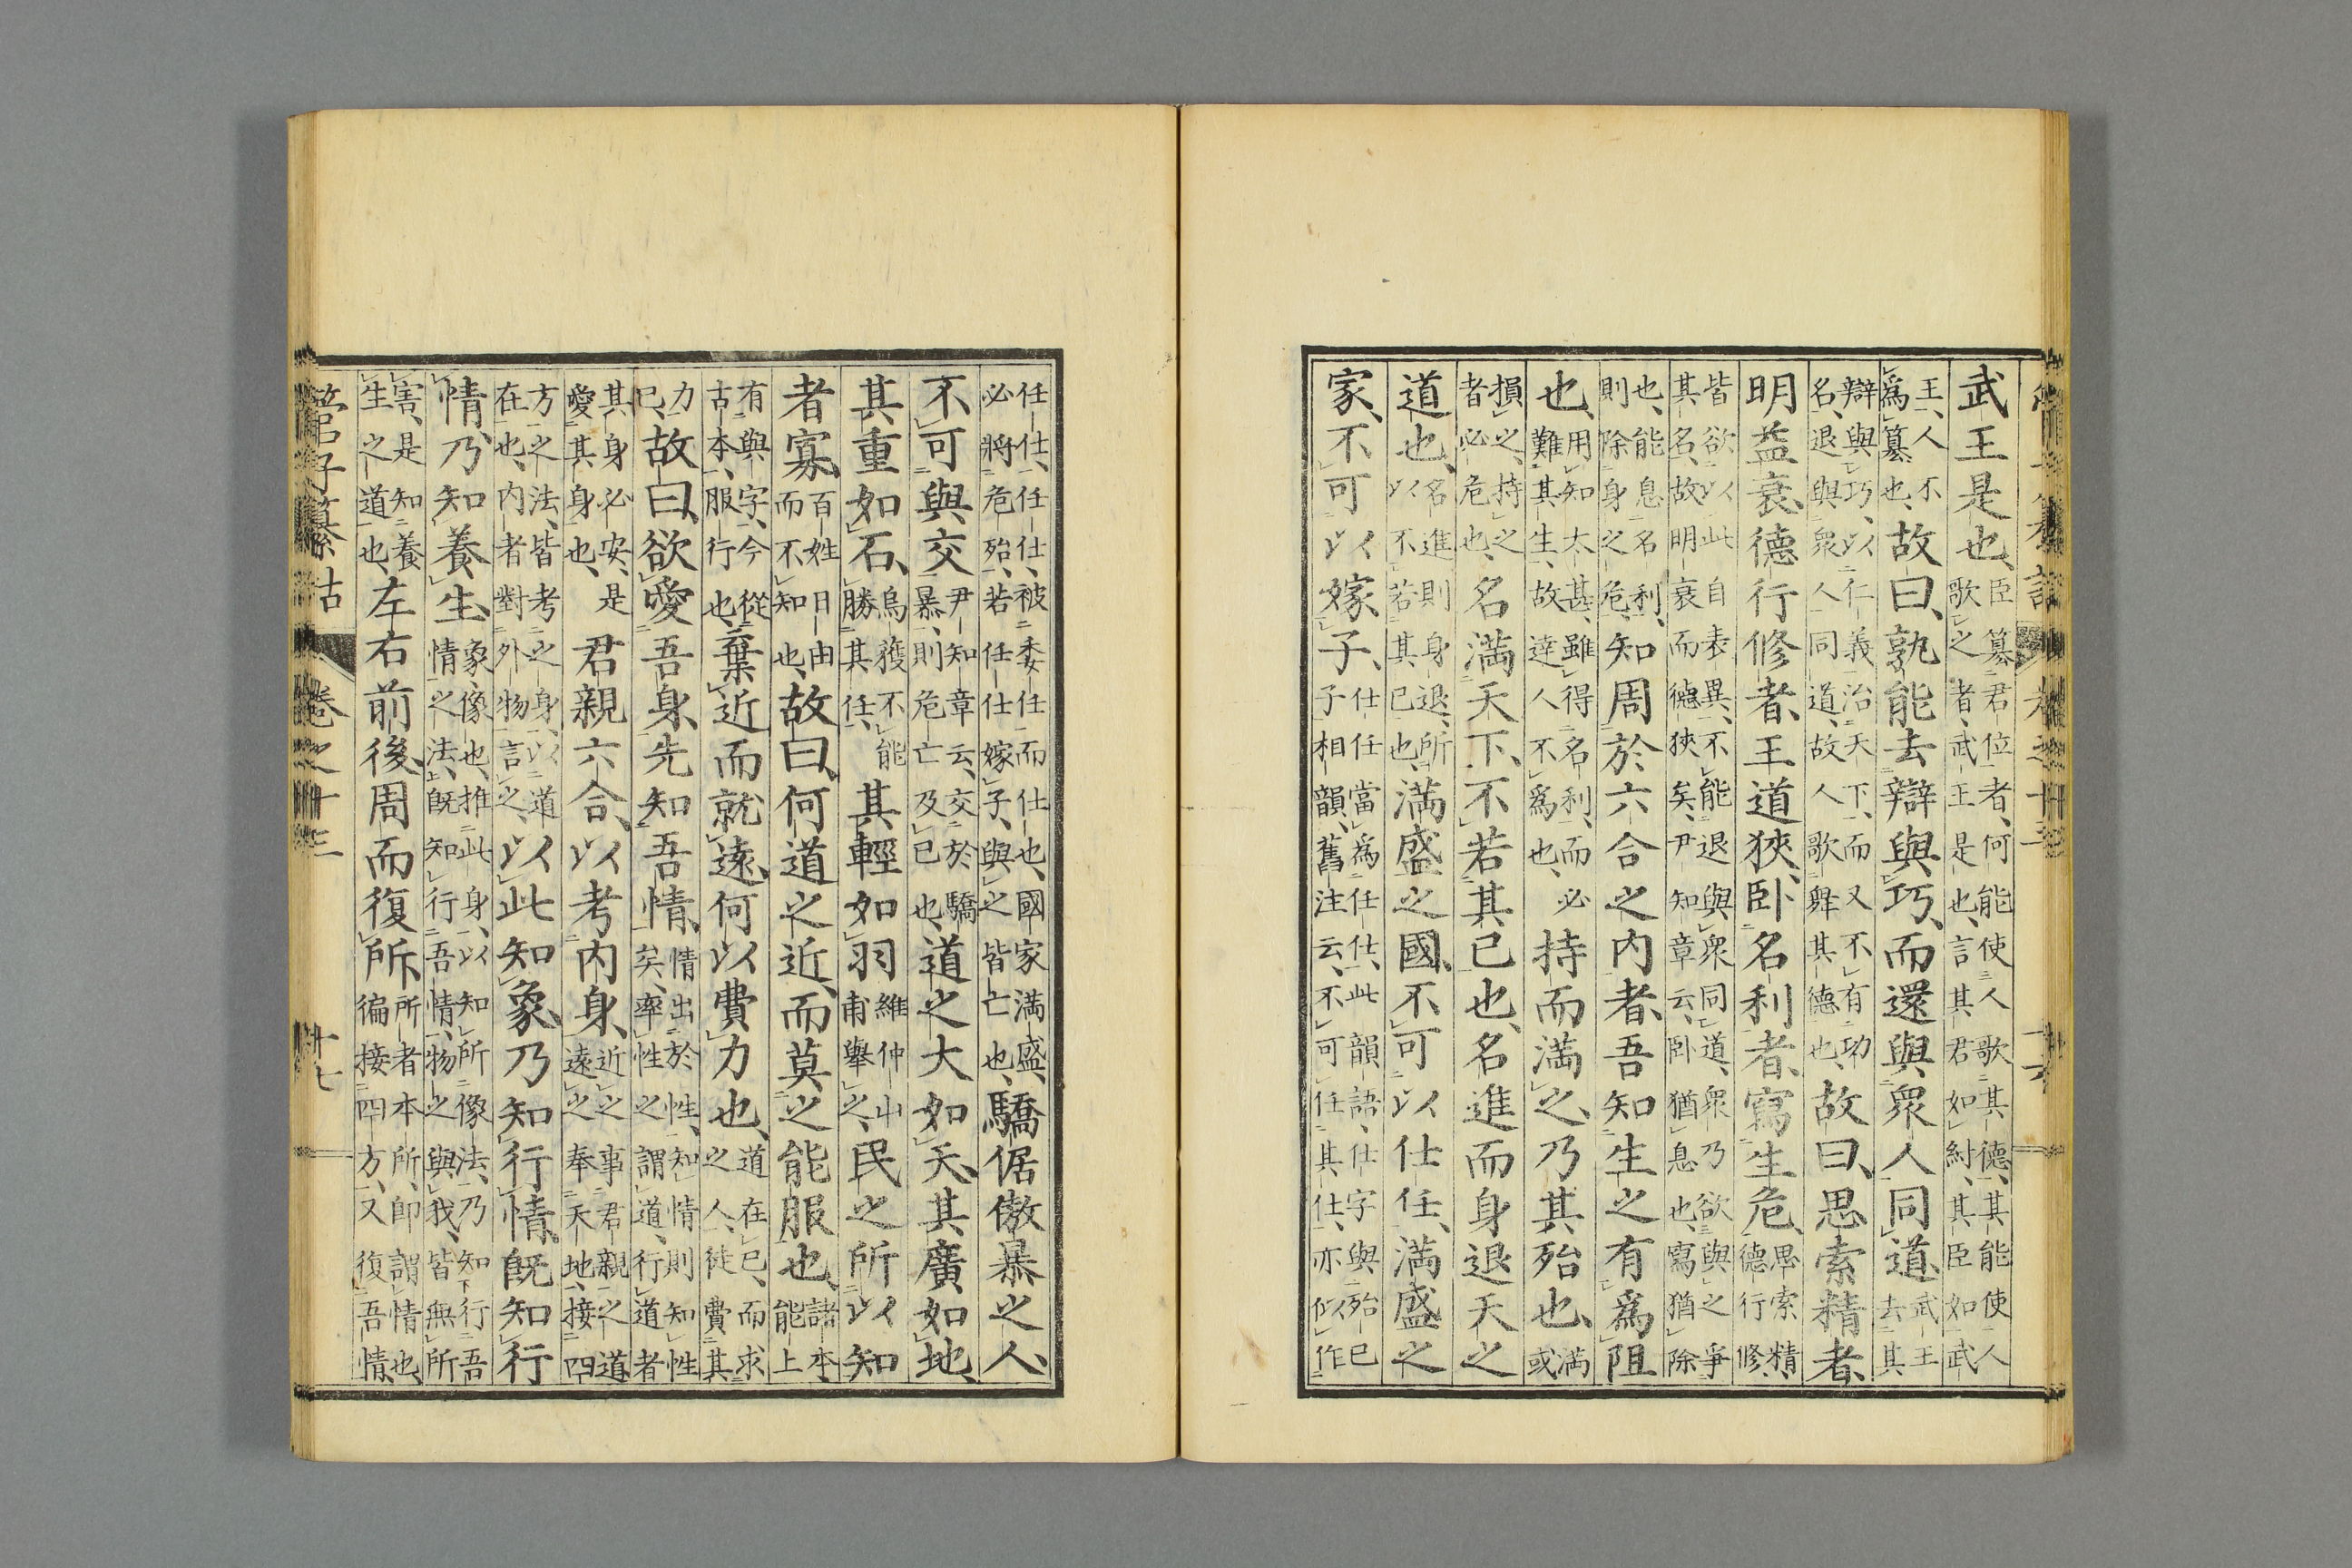 武王是也、臣簒君位者、何能使人歌其德、其能使人歌之者、武王是也、言其君如紂、其臣如武
王、人不爲簒也、故曰、孰能去辯與巧、而還與衆人同道、武王去其
辯與巧、以仁義治天下、而又不有功名、退與衆人同道、故人歌舞其德也、故曰、思索精者、
明益衰、德行修者、王道狹、卧名利者、寫生危、思索精德行修、
皆欲以此自表異、不能退與衆同道、衆乃欲與之爭其名、故明衰而德狹矣、尹知章云、卧猶息也、寫猶除
也、能息名利、則除身之危、知周於六合之內者、吾知生之有爲阻
也、用知太甚、雖得名利、而必難其生、故達人不爲也、持而滿之、乃其殆也、滿或
損之、持之者必危也、名滿天下、不若其已也、名進而身退天之
道也、名進則身退、所以不若其已也、滿盛之國、不可以仕任、滿盛之
家、不可以嫁子、仕任當爲任仕、此韻語、仕字與殆已子相韻、舊注云、不可任其仕、亦似作
任仕、任仕、被委任而仕也、國家滿盛、必將危殆、若任仕嫁子、與之皆亡也、驕倨傲暴之人、
不可與交、尹知章云、交於驕暴、則危亡及已也、道之大如天、其廣如地、
其重如石、烏獲不能勝其任、其輕如羽、維仲山甫擧之、民之所以知
者寡、百姓日由而不知也、故曰、何道之近、而莫之能服也、諸本能上
有與字、今從古本、服行也、棄近而就遠、何以費力也、道在已、而求之人、徒費其
力已、故曰、欲愛吾身、先知吾情、情出於性、知情則知性矣、率性之謂道、行道者
其身必安、是愛其身也、君親六合、以考內身、近之事君親之道遠之奉天地、接四
方之法、皆考之身、以道在也、內者對外物言之、以此知象、乃知行情、既知行
情、乃知養生、象、像也、推此身、以知所像法、乃知行吾情之法、既知行吾情、物之與我、皆無所
害、是知養生之道也、左右前後、周而復所、所者本所、卽謂情也、徧接四方、又復吾情、
管子纂詁 卷之十三 十七